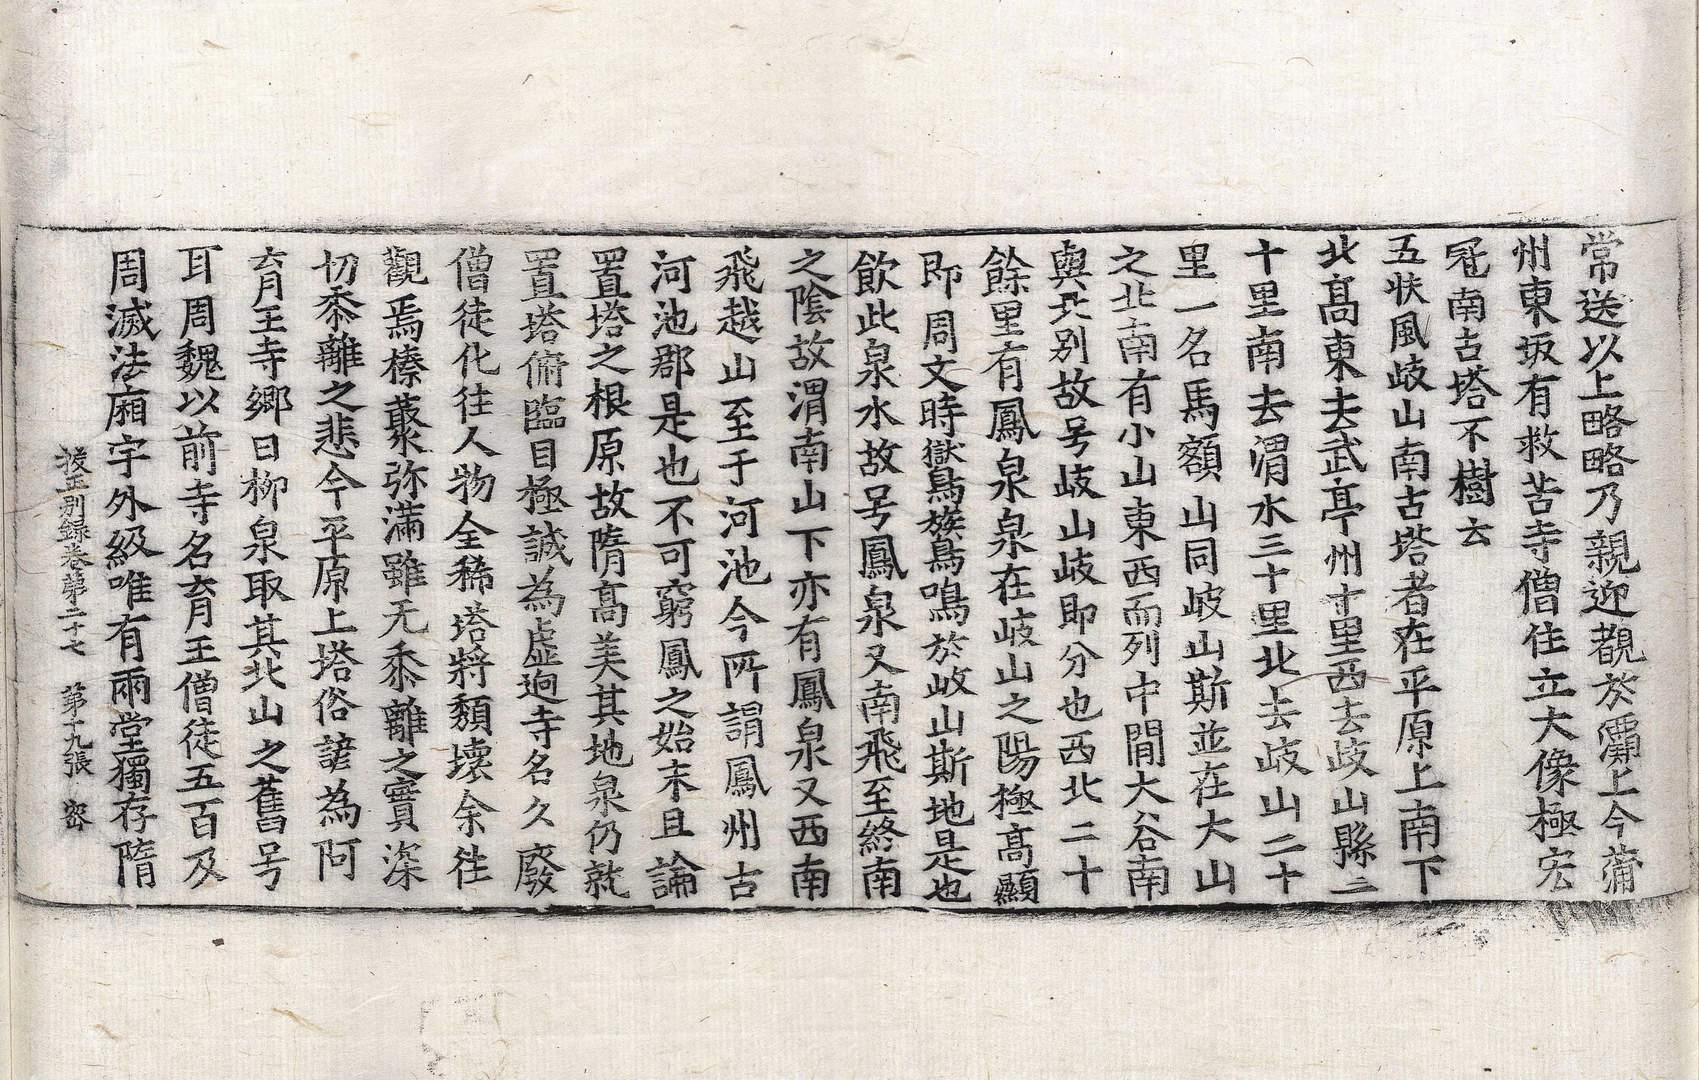 常送以上略略乃親迎覩於灞上今蒲
州東坂有救苦寺僧住立大像極宏
冠南古塔不樹云
五扶風岐山南古塔者在平原上南下
北高東去武亭州十里西去岐山縣二
十里南去渭水三十里北去岐山二十
里一名馬額山同岐山斯並在大山
之北南有小山東西而列中間大谷南
與北別故号岐山岐即分也西北二十
餘里有鳳泉泉在岐山之陽極高顯
即周文時獄鳥族鳥鳴於岐山斯地是也
飲此泉水故号鳳泉又南飛至終南
之陰故渭南山下亦有鳳泉又西南
飛越山至于河池今所謂鳳州古
河池郡是也不可窮鳳之始末且論
置塔之根原故隋高美其地泉仍就
置塔俯臨目極誠為虛逈寺名久廢
僧徒化往人物全稀塔將頹壞余往
觀焉榛叢弥滿雖无黍離之實深
切黍離之悲今平原上塔俗諺為阿
育王寺鄉曰柳泉取其北山之舊号
耳周魏以前寺名育王僧徒五百及
周滅法廂宇外級唯有兩堂獨存隋
按正別錄卷第二十七　第十九張　密